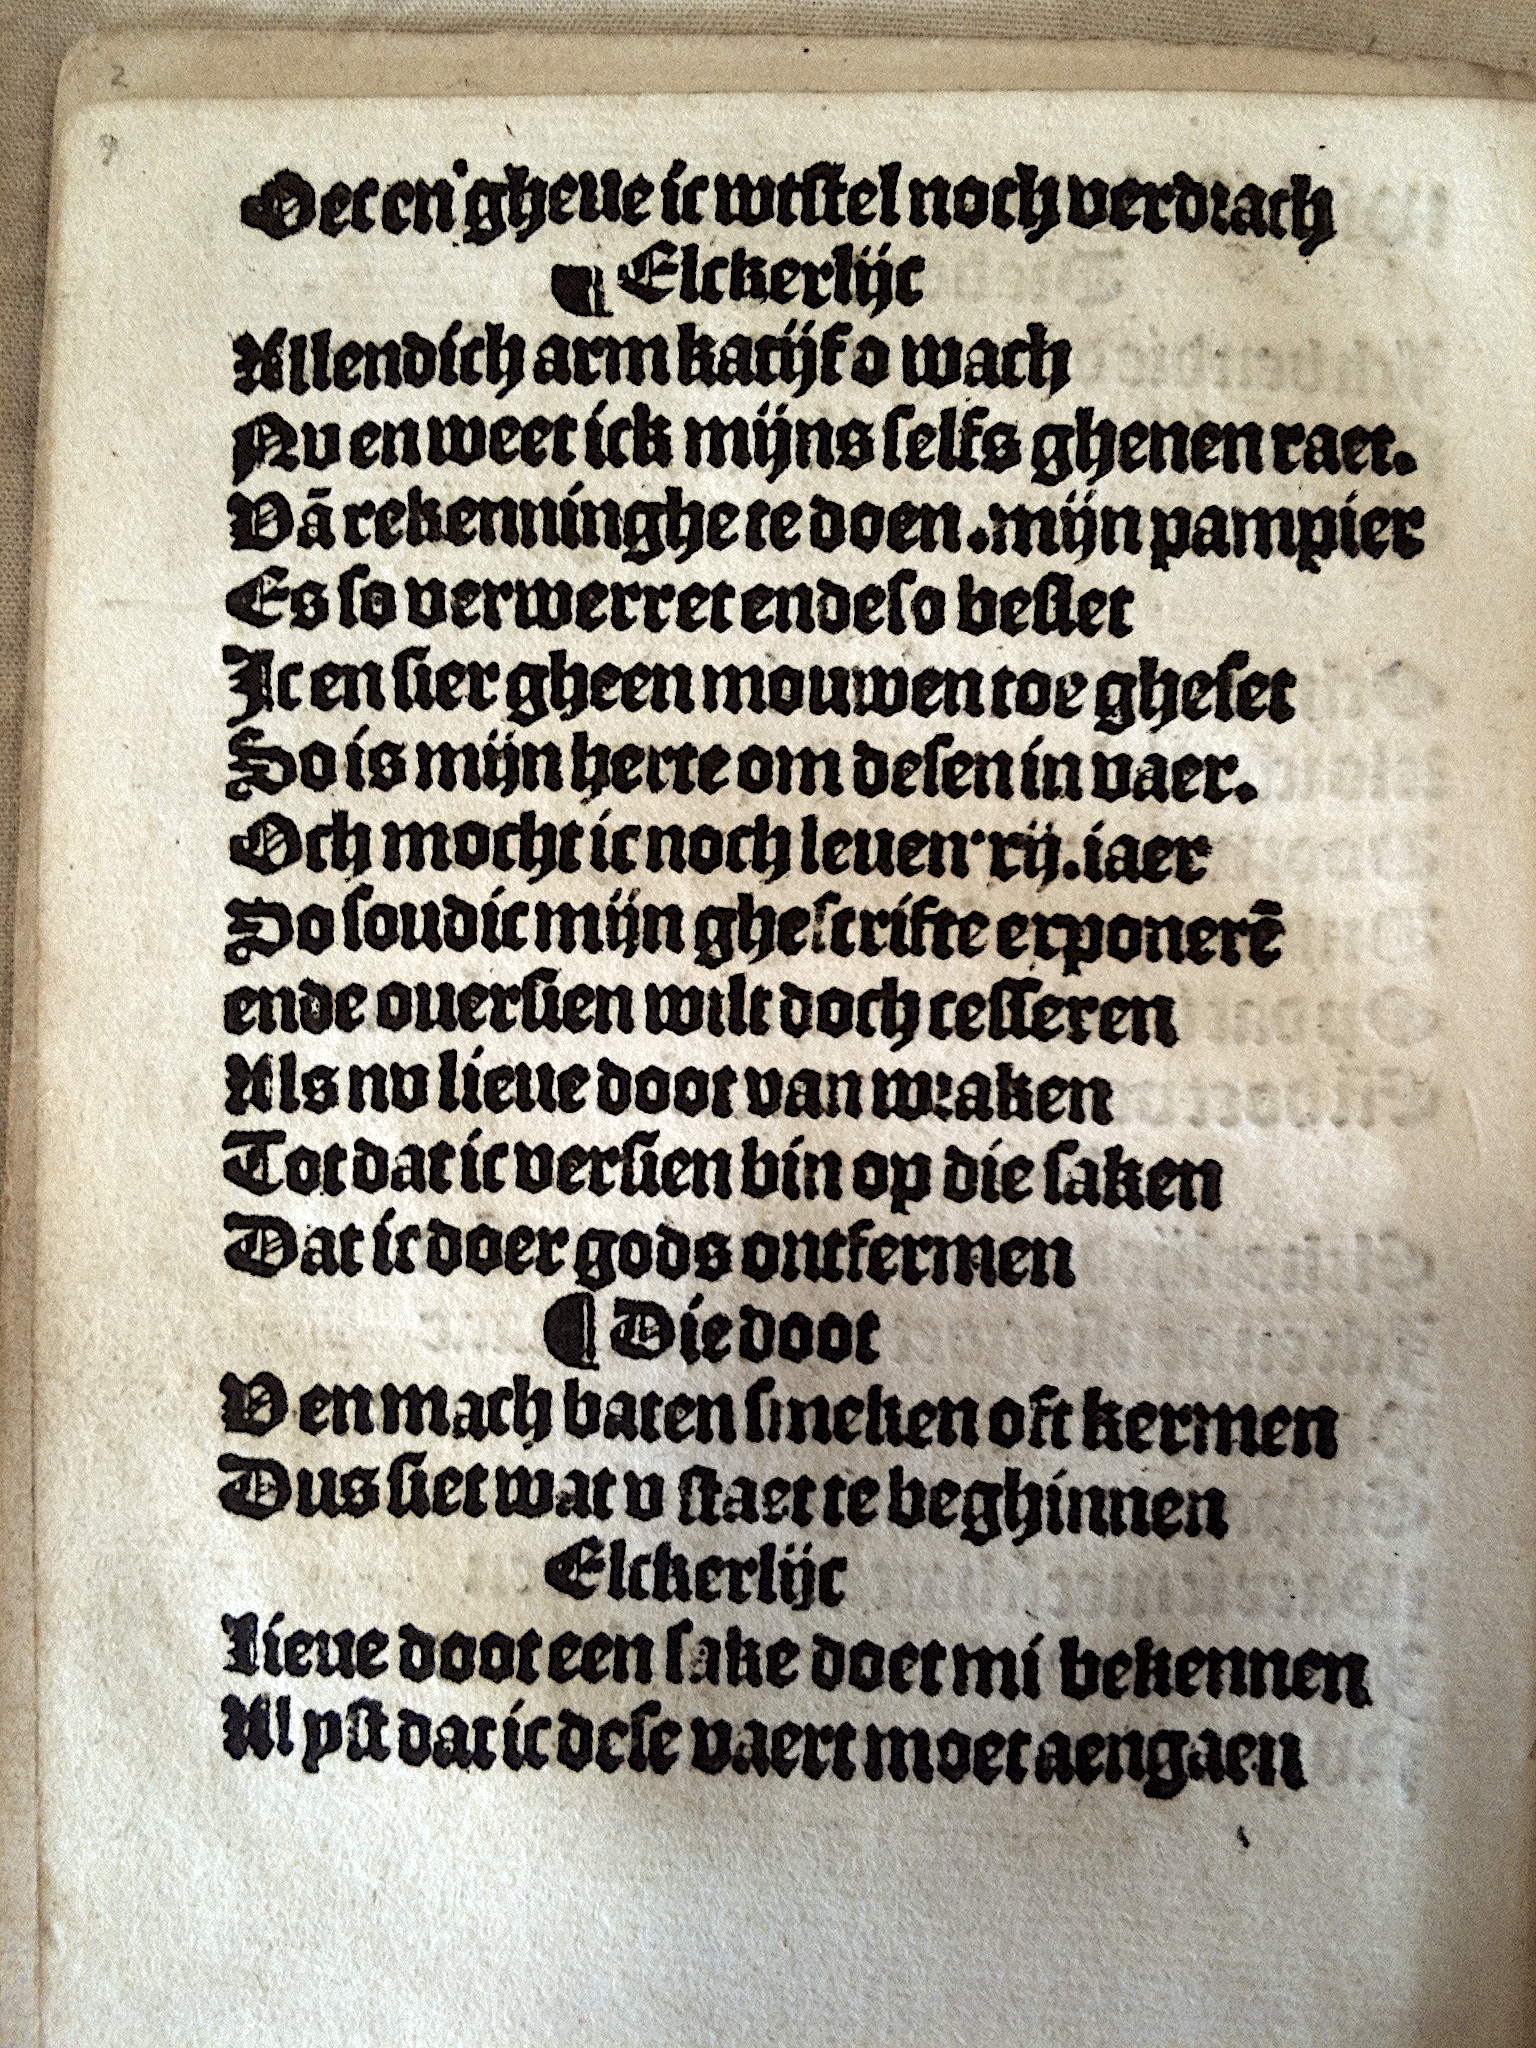 2
9
Oec en gheue ic wtstel noch verdrach
¶ Elckerlijc
Allendich arm katijf o wach
Nv en weet ick mijns selfs ghenen raet.
Vā rekenninghe te doen. mijn pampier
Es so verwerret ende so beslet
Ic en sier gheen mouwen toe gheset
So is mijn herte om desen in vaer.
Och mocht ic noch leuen .xij. iaer
So soudic mijn ghescrifte exponerē
ende ouersien wilt doch cesseren
Als nv lieue doot van wraken
Tot dat ic versien bin op die saken
Dat ic doer gods ontfermen
¶ Die doot
V en mach baten smeken oft kermen
Dus siet wat v staet te beghinnen
Elckerlijc
Lieue doot een sake doet mi bekennen
Al yst dat ic dese vaert moet aengaen